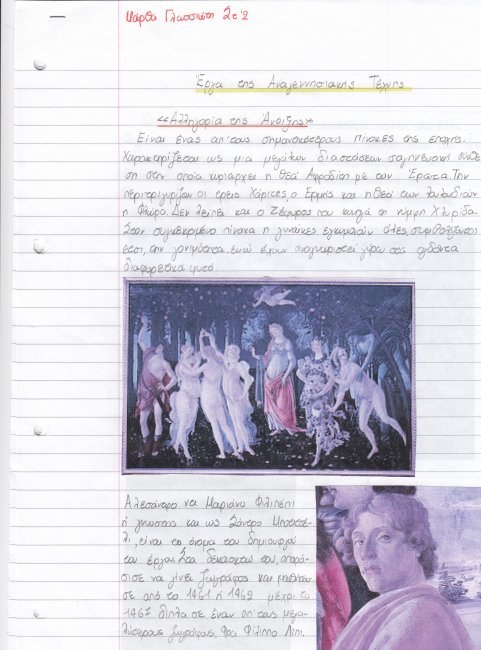 Μάρθα Γλασσιώτη Στ'2
Έργα της Αναγεννησιακής Τέχνης
<<Αλληγορία της Άνοιξης>>
Είναι ένας απ'τους σημαντικότερους πίνακες της εποχής.
Χαρακτηρίζεται ως μια μεγάλων διαστάσεων σαγηνευτική σύνθε
ση στην οποία κυριαρχεί η θεά Αφροδίτη με τον Έρωτα. Την
περιτριγυρίζουν οι τρεις Χάριτες, ο Ερμής και η θεά των λουλουδιών
η Φλώρα. Δεν λείπει και ο Ζέφυρος που κυνηγά τη νύμφη Χλωρίδα.
Στον συγκεκριμένο πίνακα η γυναίκες εγκυμονούν όλες συμβολίζοντας
έτσι, την γονιμότητα ενώ έχουν αναγνωριστεί γύρω στα
διαφορετικά φυτά.
Αλεσάντρο ντι Μαριάνο Φιλιπέπι
ή γνωστός και ως Σάντρο Μποτιτσέ-
λι, είναι το όνομα του δημιουργού
του έργου. Στα δεκαοχτώ του, αποφά-
σισε να γίνει ζωγράφος και μαθήτευ
σε από το 1461 ή 1462 μέχρι το
1467 δίπλα σε έναν απ'τους μεγα-
λύτερους ζωγράφους, Φρα Φίλιππο Λίπι.